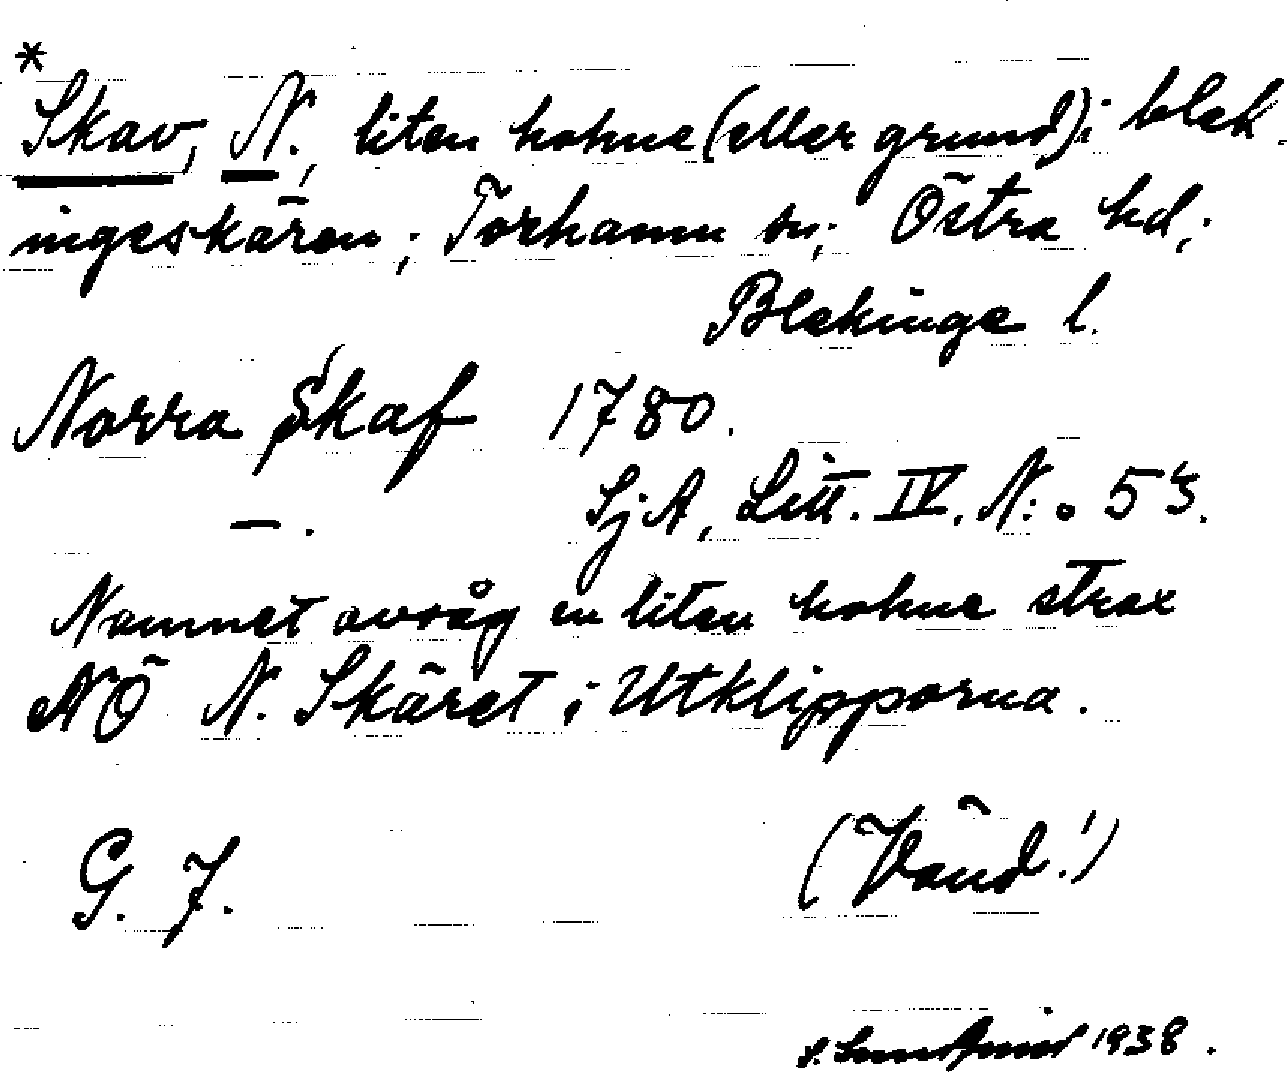 *
Skav, N., liten holme (eller grund) i blek-
ingeskären; Torhamn sn; Östra hd;
Blekinge l.
Norra Skaf 1780.
—. SjA, Litt. IV. N:o 53.
Namnet avsåg en liten holme strax
NÖ N. Skäret i Utklipporna.
G. F. (Vänd!)
1938.